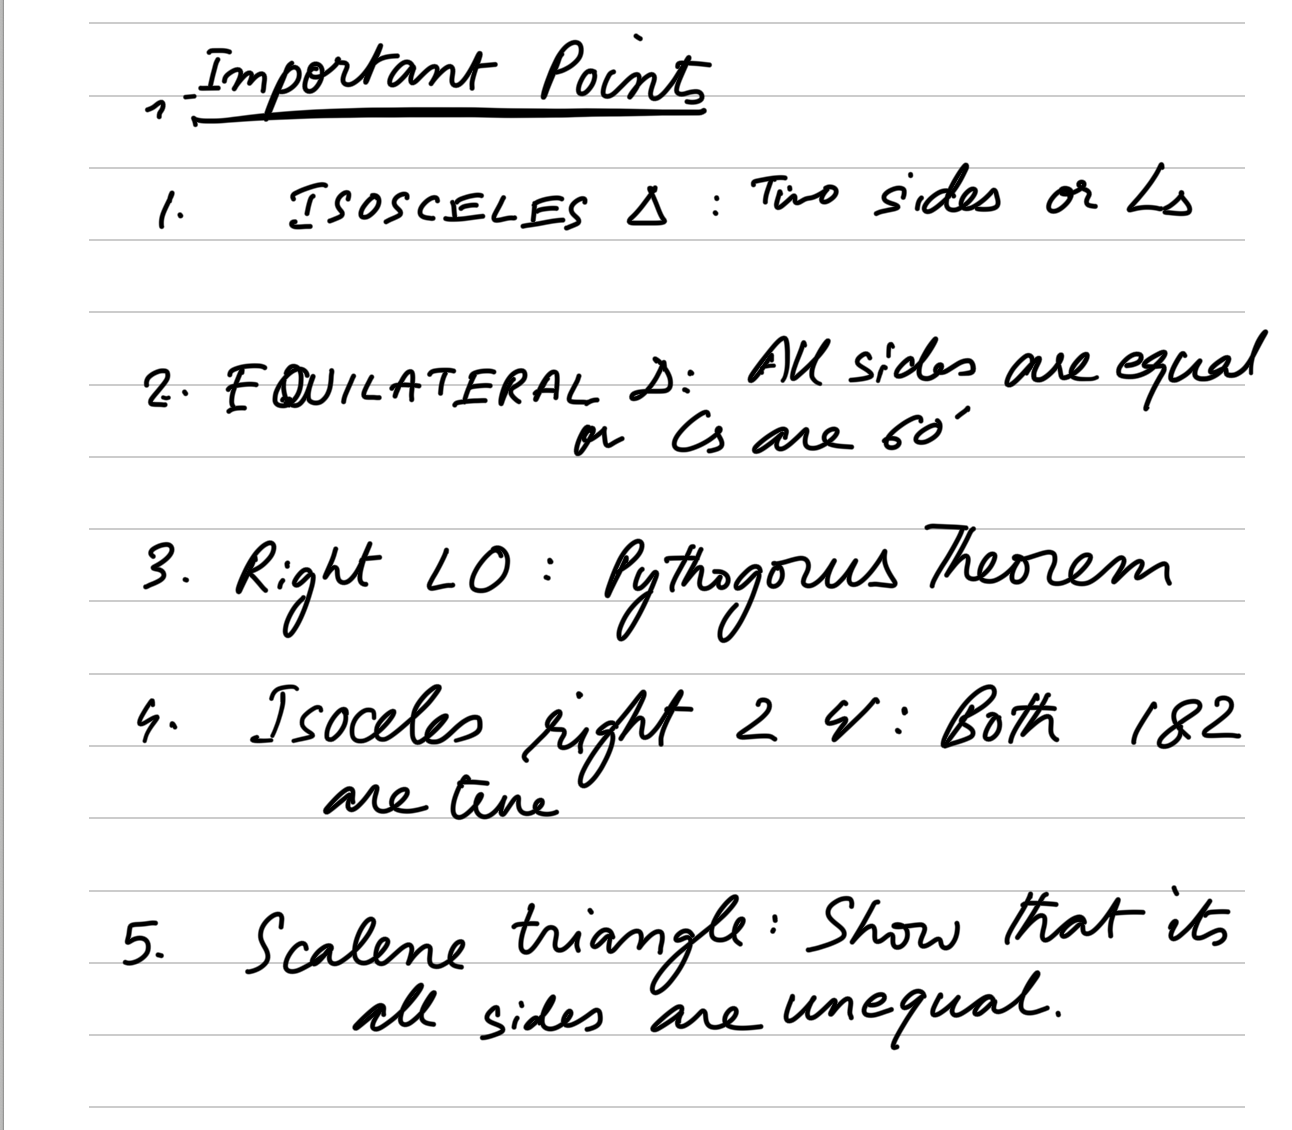 Important Points
1. ISOSCELES Δ : Two sides or ∠s
2. EQUILATERAL Δ: All sides are equal
or ∠s are 60°
3. Right ∠ Δ : Pythogorus Theorem
4. Isoceles right : Both 1&2
are true
5. Scalene triangle: Show that its
all sides are unequal.